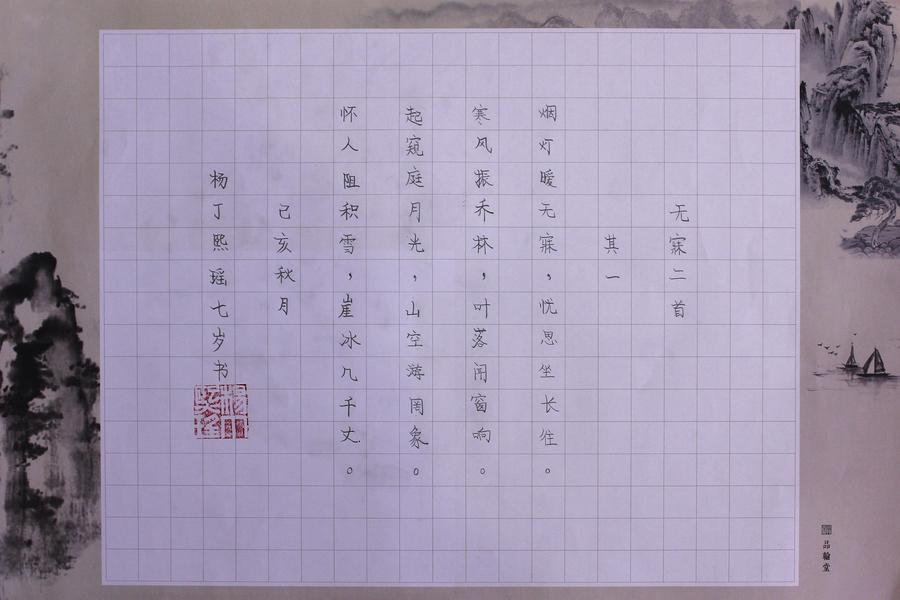 无寐二首
其一
烟灯暖无寐，忧思坐长往。
寒风振乔林，叶落闻窗响。
起窥庭月光，山空游罔象。
怀人阻积雪，崖冰几千丈。
己亥秋月
杨丁熙瑶七岁书
品翰堂